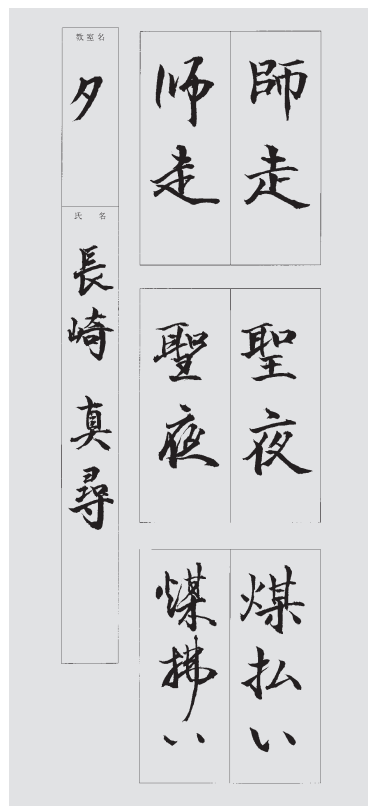 師走
师走
聖夜
聖夜
煤払い
煤拂い
教室名
夕
氏名
長崎 真尋